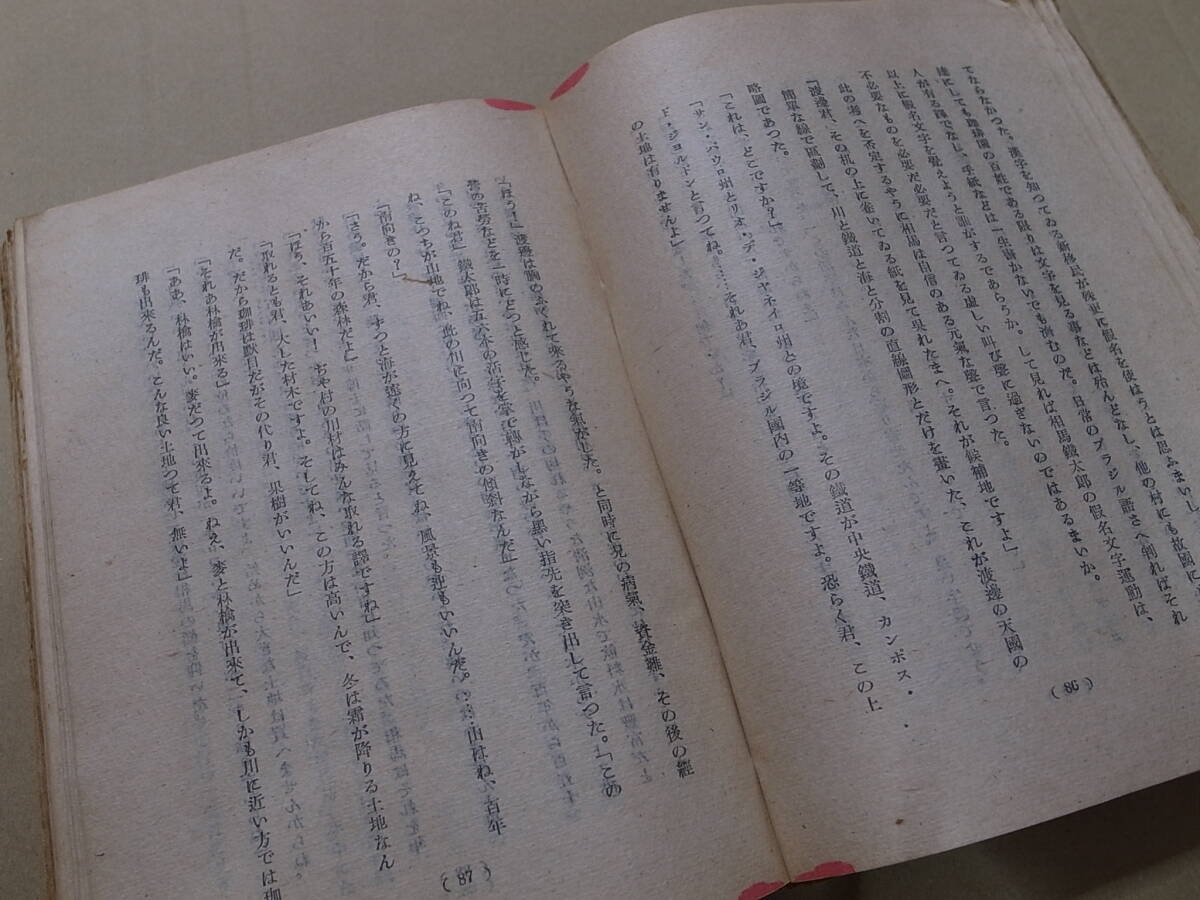 てたらなかつた。漢字を知つてゐる新移民が殊更に假名を使はうとは思ふまいし、
達にしても珈琲園の百姓である限りは文字を見る事などは殆んどなし、他の村にも故國に
人が有る譯でなし、手紙などは一生書かないでも濟むのだ。日常のブラジル語さへ判ればそれ
以上に假名文字を覺えようと誰がするであらうか。して見れば相馬鐵太郎の假名文字運動は、
不必要なものを必要だ必要だと言つてゐる虚しい叫び聲に過ぎないのではあるまいか。
此の考へを否定するやうに相馬は自信のある元氣な聲で言つた。
「渡邊君、その机の上に卷いてゐる紙を見て呉れたまへ。それが候補地ですよ」
簡單な線で區劃して、川と鐵道と海と分割の直線圖形とだけを畫いた、これが渡邊の天國の
略圖であつた。
「これは、どこですか?」
「サン・パウロ州とリオ・デ・ジヤネイロ州との境ですよ。その鐵道が中央鐵道、カンポス・
ド・ジヨルドンと言つてね。……それあ君、ブラジル國内の一等地ですよ。恐らく君、この上
の土地は有りませんよ」
(86)
「ほう!」渡邊は胸のふくれて來るやうな氣がした。と同時に兒の病氣、資金難、その後の經
營の苦勞などを一時にどつと感じた。
「このね君」鐵太郎は五六本の活字を掌で轉がしながら黒い指先を突き出して言つた。「この
ね、こつちが山地でね、此の川に向つて南向きの傾斜なんだ」
「南向きの?」
「さう。だから君、ずつと海が遠くの方に見えてね、風景も迚もいいんだ。
山はね、百年
から百五十年の森林だよ」
「ほう、それあいい! ぢや村の用材はみんな取れる譯ですね」
「取れるとも君、大した材木ですよ。そしてね、この方は高いんで、冬は霜が降りる土地なん
だ。だから珈琲は駄目だがその代り君、果樹がいいんだ」
「それあ林檎が出來る」
「ああ、林檎はいい。麥だつて出來るよ。ねえ、麥と林檎が出來て、しかも川に近い方では珈
琲も出來るんだ。こんな良い土地つて君、無いよ」
(87)